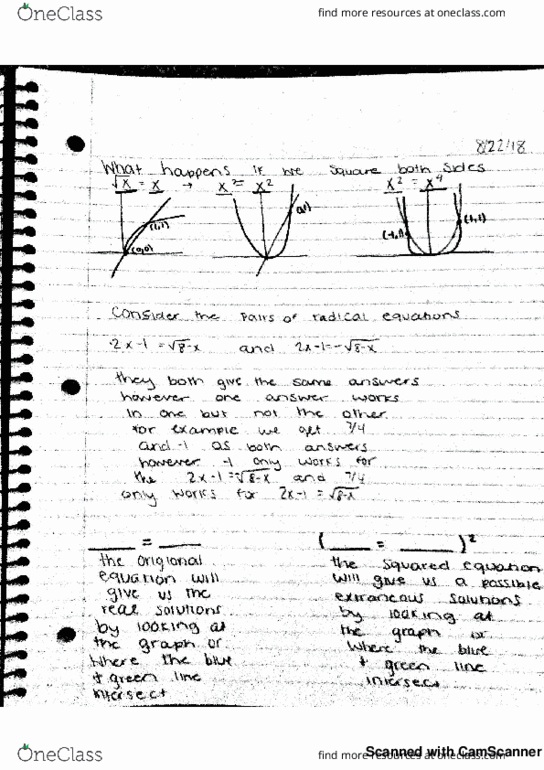 OneClass
find more resources at oneclass.com
8/22/18
What happens if we square both sides
√x = x → x = x² x² = x⁴
(1,1)
(0,0)
(1,1)
(-1,1)
(1,1)
Consider the pairs of radical equations
2x-1=√8-x and 2x-1=-√8-x
they both give the same answers
however one answer works
in one but not the other.
for example we get 7/4
and -1 as both answers
however -1 only works for
the 2x-1=-√8-x and 7/4
only works for 2x-1=√8-x
___ = ___
the origional
equation will
give us the
real solutions
by looking at
the graph or
where the blue
+ green line
intersect
(___ = ___)²
the squared equation
will give us a possible
extraneous solutions
by looking at
the graph or
where the blue
+ green line
intersect
OneClass
find more resources at oneclass.com
Scanned with CamScanner